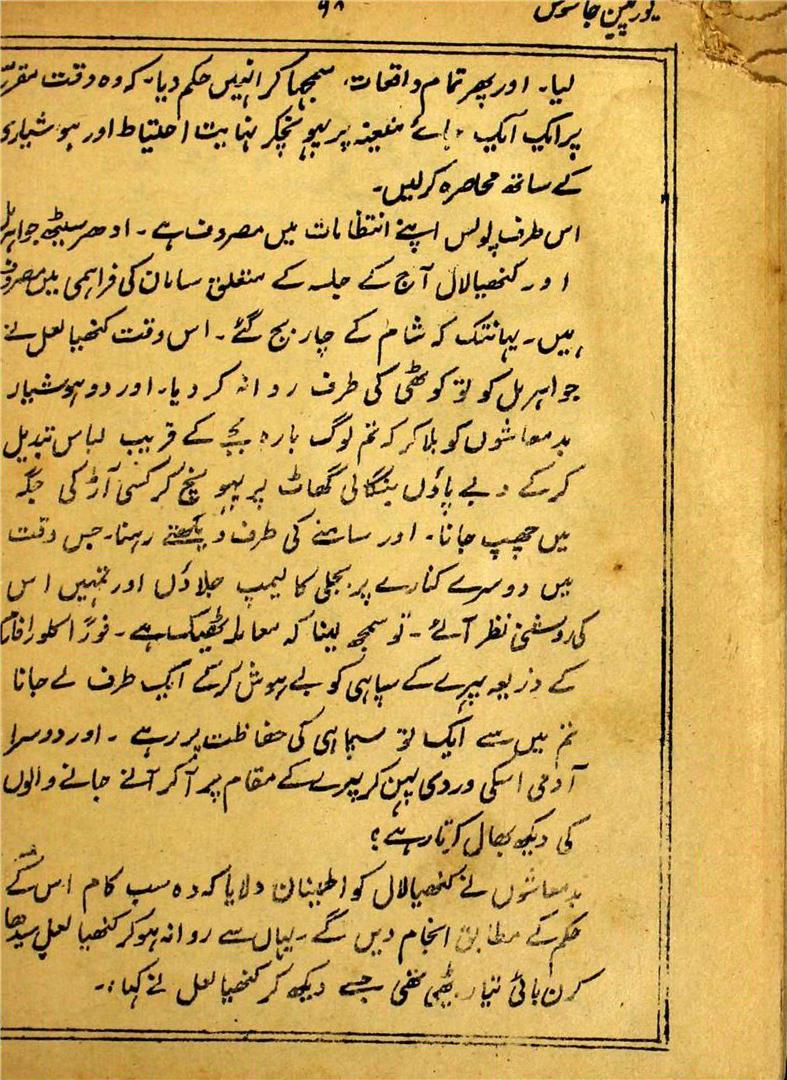 یورپین جاسوس ۹۸
لیا۔ اور پھر تمام واقعات، سمجھا کر انہیں حکم دیا۔ کہ وہ وقت مقررہ
پر ایک ایک جائے معینہ پر پہونچکر نہایت احتیاط اور ہوشیاری
کے ساتھ محاصرہ کر لیں۔
اس طرف پولس اپنے انتظامات میں مصروف ہے۔ ادھر سیٹھ جواہر مل
اور کنھیالال آج کے جلسہ کے متعلق سامان کی فراہمی میں مصروف
ہیں۔ یہانتک کہ شام کے چار بج گئے۔ اس وقت کنھیا لعل نے
جواہر مل کو تو کوٹھی کی طرف روانہ کر دیا۔ اور دو ہوشیار
بدمعاشوں کو بلا کر کہ تم لوگ بارہ بجے کے قریب لباس تبدیل
کر کے دبے پاؤں بنگالی گھاٹ پر پہونچ کر کسی آڑ کی جگہ
میں چھپ جانا۔ اور سامنے کی طرف دیکھتے رہنا۔ جس وقت
میں دوسرے کنارے پر بجلی کا لیمپ جلاؤں اور تمہیں اس
کی روشنی نظر آئے۔ تو سمجھ لینا کہ معاملہ ٹھیک ہے۔ فوراً کلورافارم
کے ذریعہ پہرے کے سپاہی کو بے ہوش کر کے ایک طرف لے جانا
تم میں سے ایک تو سپاہی کی حفاظت پر رہے۔ اور دوسرا
آدمی اسکی وردی پہن کر پہرے کے مقام پر آ کر آنے جانے والوں
کی دیکھ بھال کرتا رہے؛
بدمعاشوں نے کنھیالال کو اطمینان دلایا کہ وہ سب کام اس کے
حکم کے مطابق انجام دیں گے۔ یہاں سے روانہ ہو کر کنھیا لعل سیدھا
کرن بائی تیار بیٹھی تھی جسے دیکھ کر کنھیا لعل نے کہا:۔